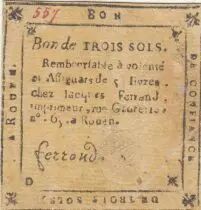 557
BON
Bon de TROIS SOLS.
Remboursable à volonté
en Assignats de 5 livres
chez Jacques Ferrand,
imprimeur, rue
nº. 65, à Rouen.
ferrand
D
A ROUEN.
DE CONFIANCE
DE TROIS SOLS